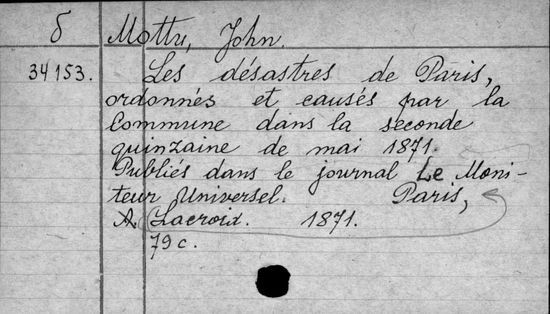 б Mottu, John.
34153. Les désastres de Paris,
ordonnés et causés par la
Commune dans la seconde
quinzaine de mai 1871.
Publiés dans le journal Le Moni-
teur Universel. Paris,
A. Lacroix. 1871.
79 c.